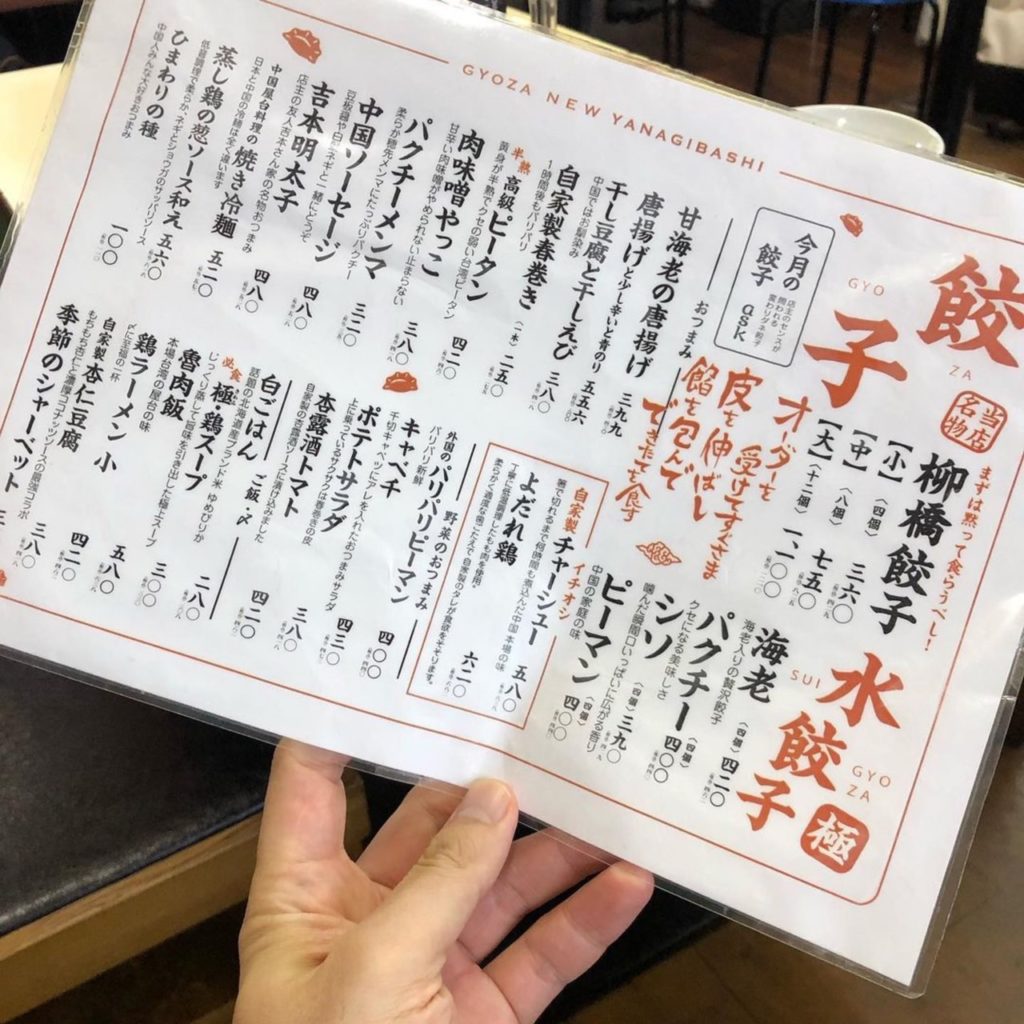 GYOZA NEW YANAGIBASHI
餃子
GYO
ZA
当店名物
まずは黙って食らうべし！
柳橋餃子
【小】（四個）三六〇
【中】（八個）七五〇
【大】（十二個）一、一〇〇
水餃子
SUI
GYO
ZA
極
海老
海老入りの贅沢餃子
（四個）四二〇
パクチー
クセになる美味しさ
（四個）四〇〇
シソ
噛んだ瞬間口いっぱいに広がる香り
（四個）三九〇
ピーマン
中国の家庭の味
（四個）四〇〇
今月の餃子 ask
オーダーを
受けてすぐさま
皮を伸ばし
餡を包んで
できたてを食す
おつまみ
甘海老の唐揚げ 三九九
唐揚げと少し辛い青のり 五五六
干し豆腐と干しえび 三八〇
中国ではお馴染み
自家製春巻き（一本）二五〇
1時間後もパリパリ
半熟 高級ピータン 四二〇
黄身が半熟でクセの弱い台湾ピータン
肉味噌やっこ 三八〇
甘辛い肉味噌がやめられない止まらない
パクチーメンマ 三二〇
柔らか穂先メンマにたっぷりパクチー
中国ソーセージ 四八〇
豆板醤や白髪ネギと一緒にどうぞ
吉本明太子 四八〇
店主の友人吉本さん家の名物おつまみ
中国屋台料理の焼き冷麺 五二〇
日本と中国の冷麺は全く違います
蒸し鶏の葱ソース和え 五六〇
低温調理で柔らか、ネギとショウガのサッパリソース
ひまわりの種 一〇〇
中国人みんな大好きおつまみ
自家製チャーシュー イチオシ 五八〇
箸で切れるまで何時間も煮込んだ中国本場の味
よだれ鶏 六二〇
丁寧に低温調理したもも肉を使用。
柔らかく適度な歯ごたえで自家製のタレが食欲をそそります。
野菜のおつまみ
外国のパリパリピーマン 四〇〇
パリパリ新鮮
キャベチ 四〇〇
千切キャベツにタレを入れたおつまみサラダ
ポテトサラダ 四三〇
上に乗っているサクサクは春巻きの皮
杏露酒トマト 三八〇
自家製の杏露酒ソースに漬け込みました
ご飯・〆
白ごはん 二八〇
話題の北海道産ブランド米 ゆめぴりか
必食 極・鶏スープ 四二〇
じっくり蒸して旨味を引き出した極上スープ
魯肉飯 三〇〇
本場台湾の屋台の味
鶏ラーメン 小 五八〇
〆に至福の一杯
自家製 杏仁豆腐 四二〇
もちもち杏仁と濃厚ココナッツソースの最強コラボ
季節のシャーベット 三八〇